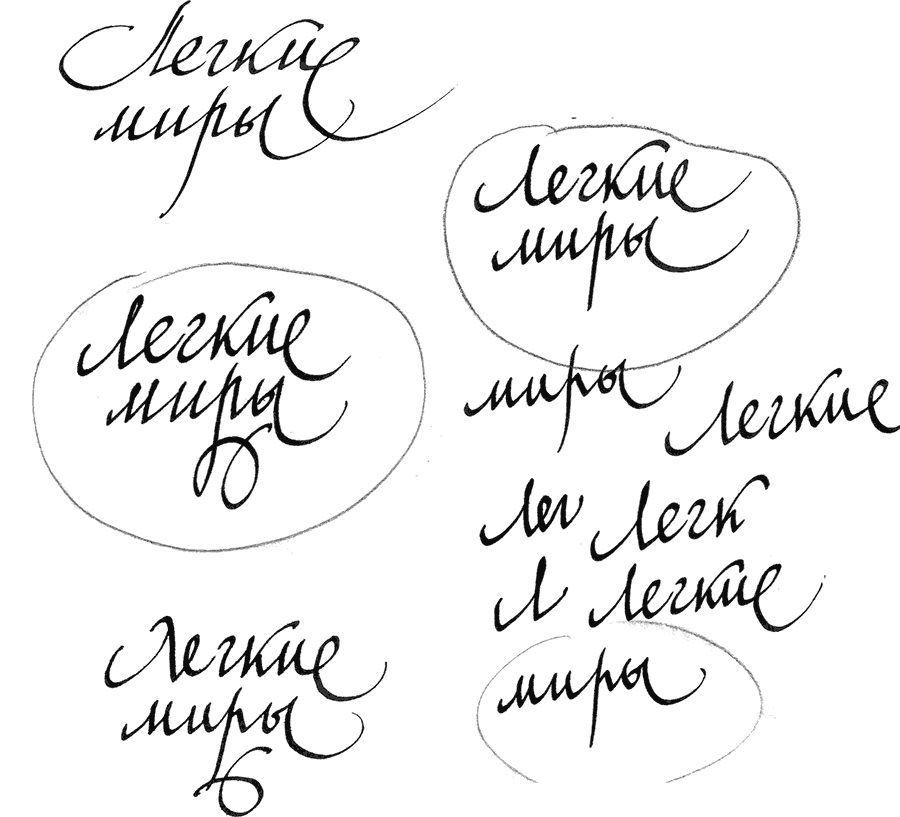 Легкие
миры
Легкие
миры
Легкие
миры
миры
Легкие
Лег
Легк
Л
Легкие
Легкие
миры
миры